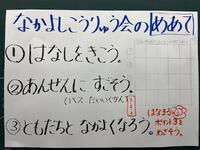 なかよしこうりゅう会のめあて
①はなしをきこう。
②あんぜんに すごそう。
(バス、たいいくかん)
③ともだちと なかよくなろう。
はなまる
ポイントまで
めざそう。